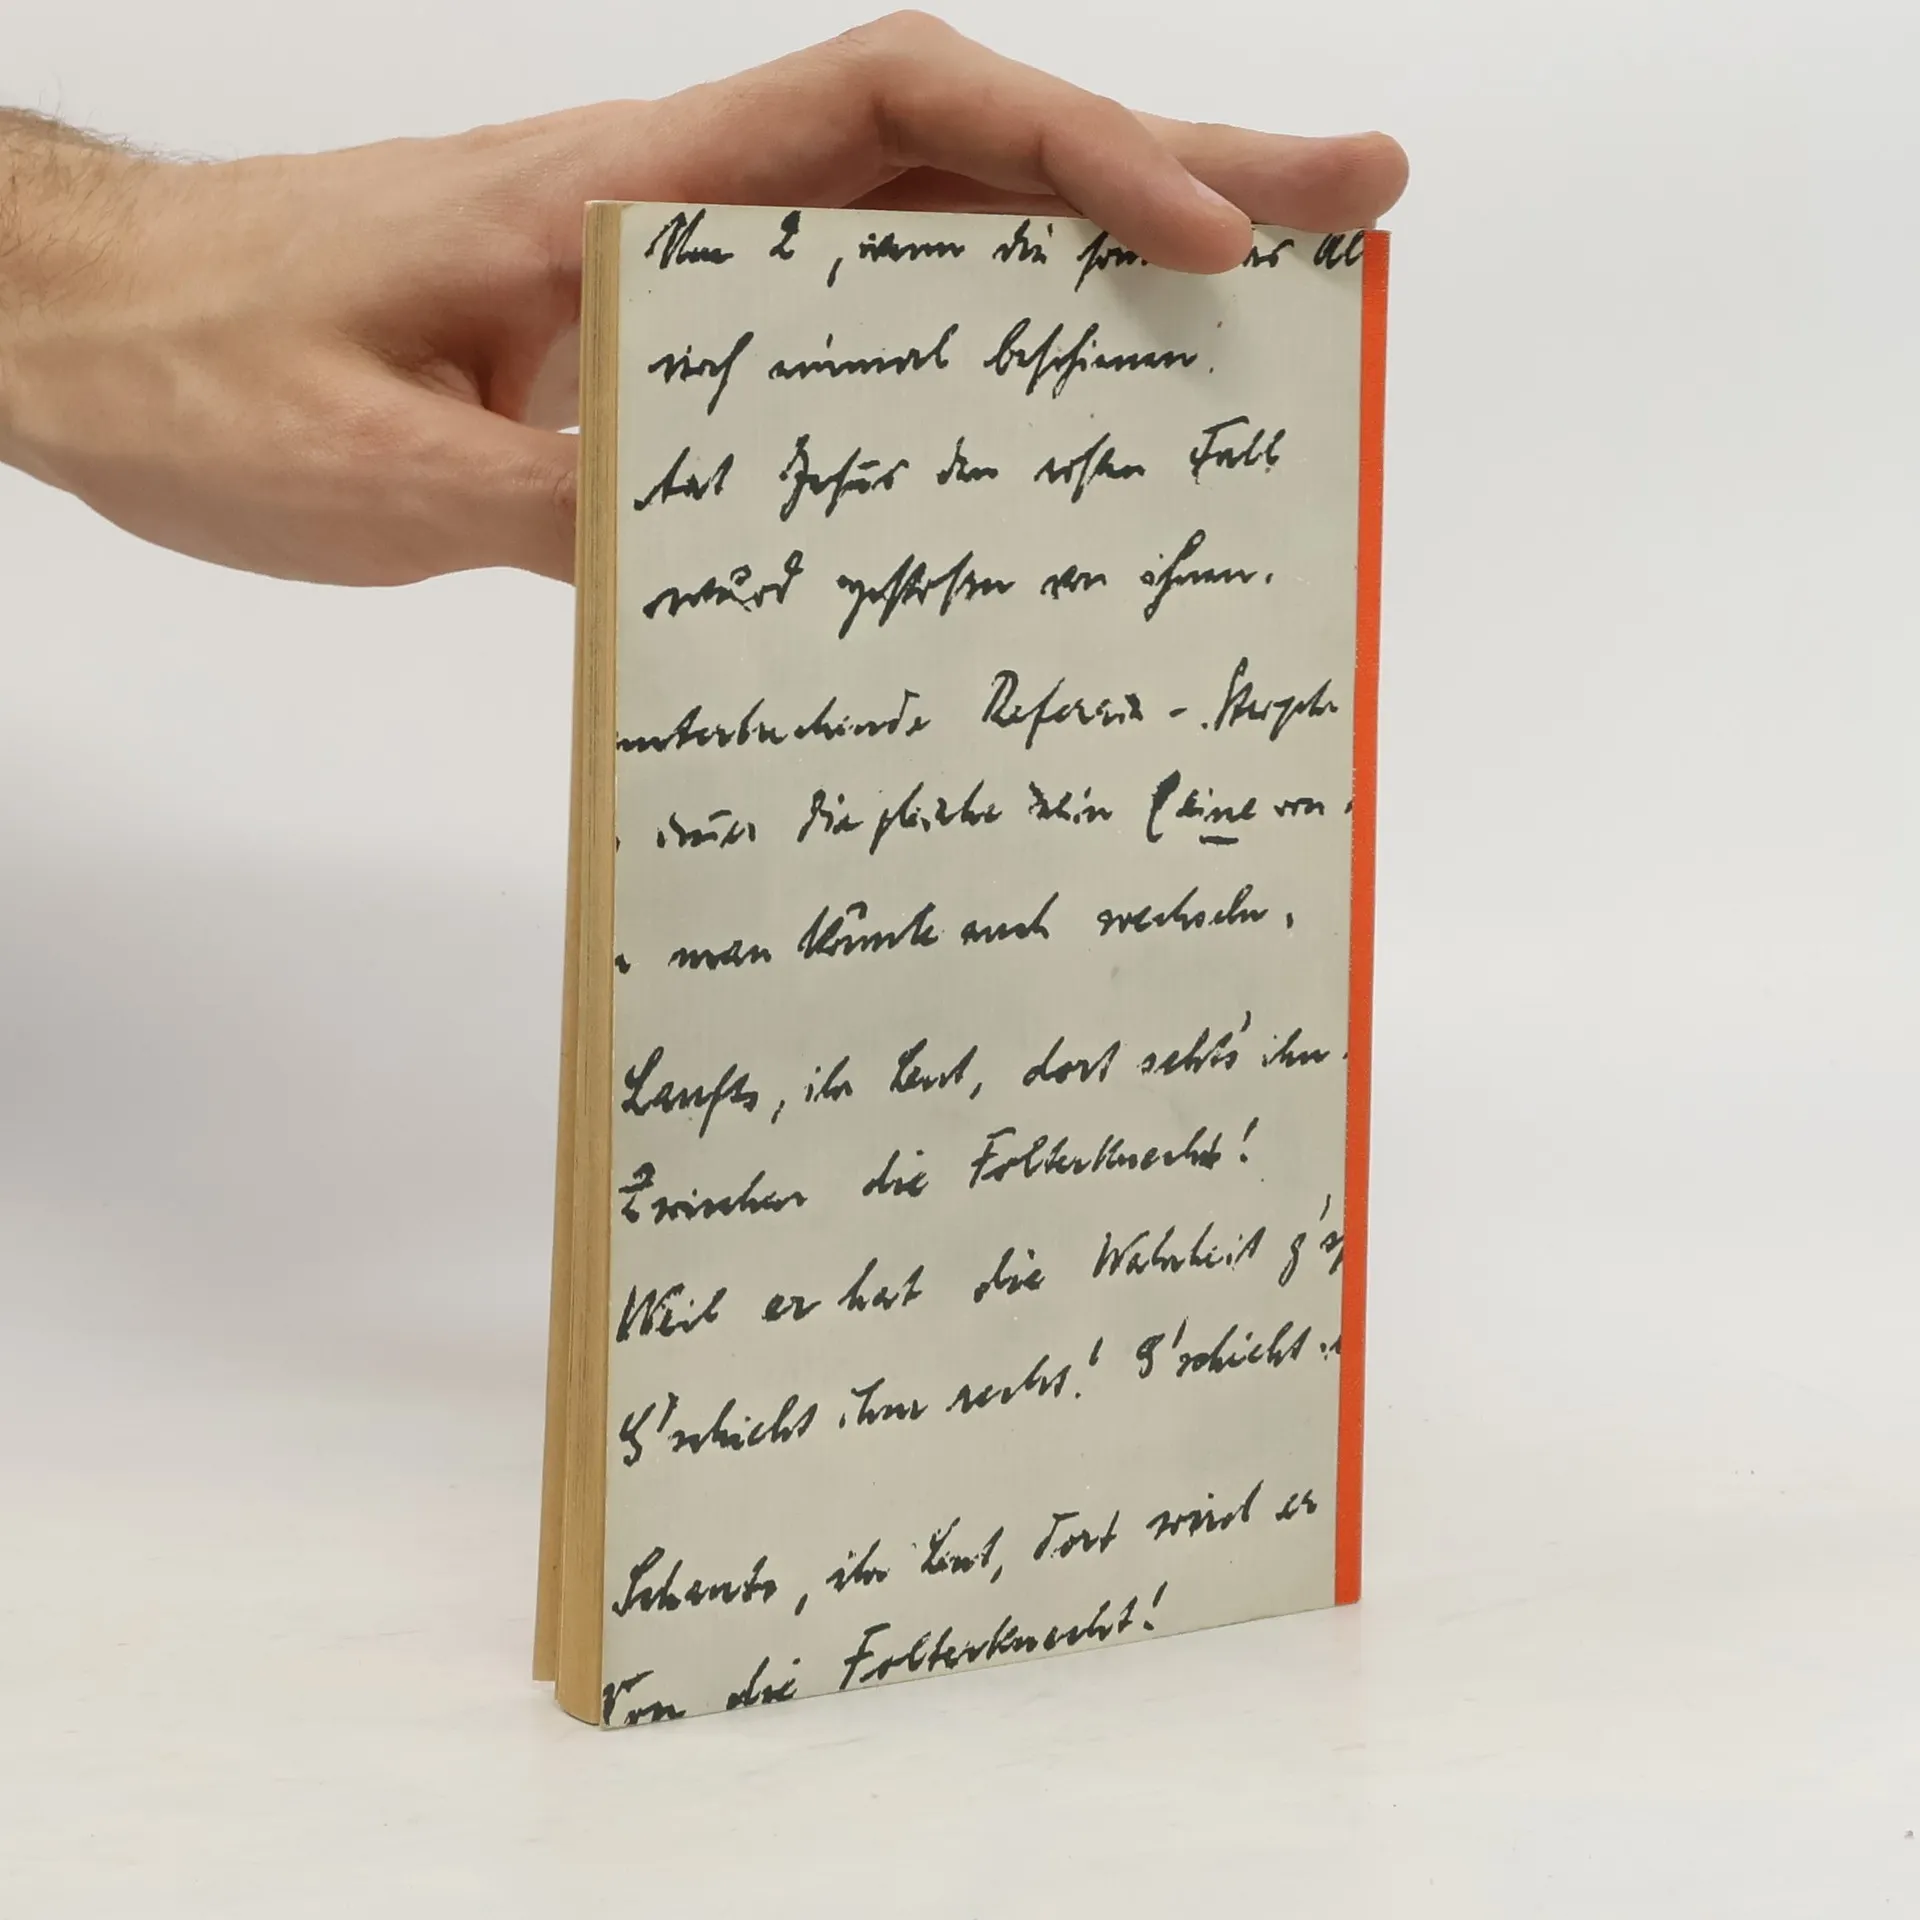 Um 2, wenn die son es Al
noch einmal beschienen.
tat Jesus den ersten Fall
würd gestosen von ihnen.
unterbrechende Refrain -
die gleiche sein (eine von
man könnte auch wechseln.
Laufts, ihr Leut, dort sehts' ihn
Zwischen die Folterknecht!
Weil er hat die Wahrheit g's
G'schicht ihm recht! G'schicht
Schauts, ihr Leut, dort wird er
Von die Folterknecht!